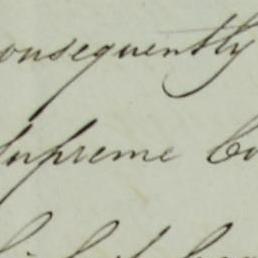 onsequently
Supreme Co